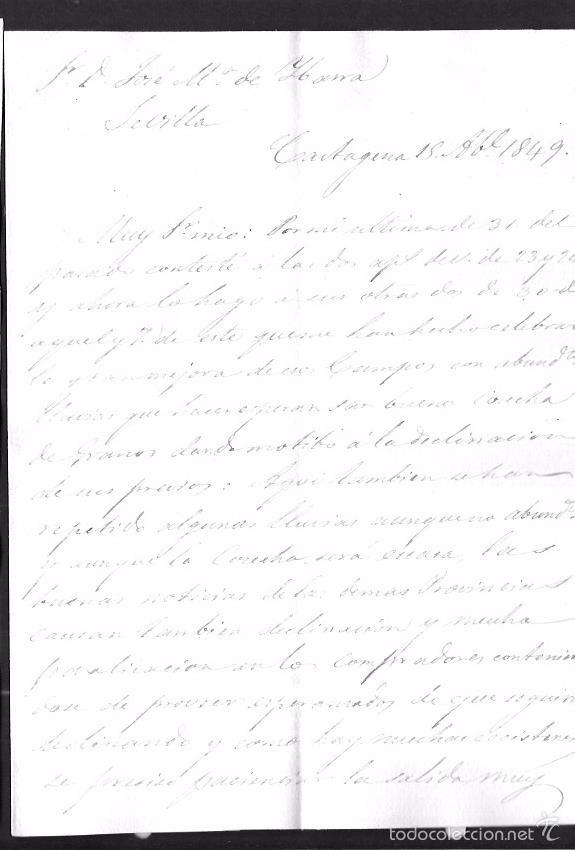 Sr. D. José Ma. de Ybarra
Sevilla
Cartagena 15. Abl. 1849.
Muy Sr. mio: Por mi ultima de 31 del
pasado contesté á las dos de v. de 23 y
y ahora lo hago á sus otras dos de 30 de
aquel y 7. de este que me han hecho celebrar
la gran mejora de esos Campos con abundtes
lluvias que hacen esperar una buena Cosecha
de Granos dando motibo á la declinacion
de sus precios: Aqui tambien se han
repetido algunas lluvias aunque no abundtes
y aunque la Cosecha será escasa, las
buenas noticias de las demas Provincias
causan tambien declinacion y mucha
paralizacion en los compradores
de proveer esperanzados de que seguirá
declinando y como hay muchas
se preciso paciencia la salida muy
todocoleccion.net